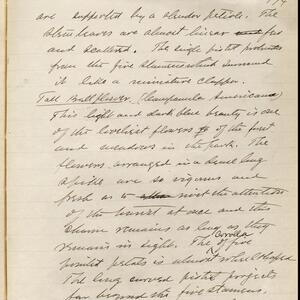 are supported by a slender petiole. The
stem leaves are almost linear few
and scattered. The single pistil protrudes
from the five stamens which surround
it like a miniature clapper.
Tall Bellflower, (Campanula Americana)
This light and dark blue beauty is one
of the loveliest flowers of the forest
and meadows in the park. The
flowers arranged in a long
spike are so vigorous and
fresh as to meet the attention
of the tourist at once and this
charm remains as long as they
remain in sight. The corolla of five
pointed petals is almost wheel shaped
The long curved pistil projects
far beyond the five stamens.